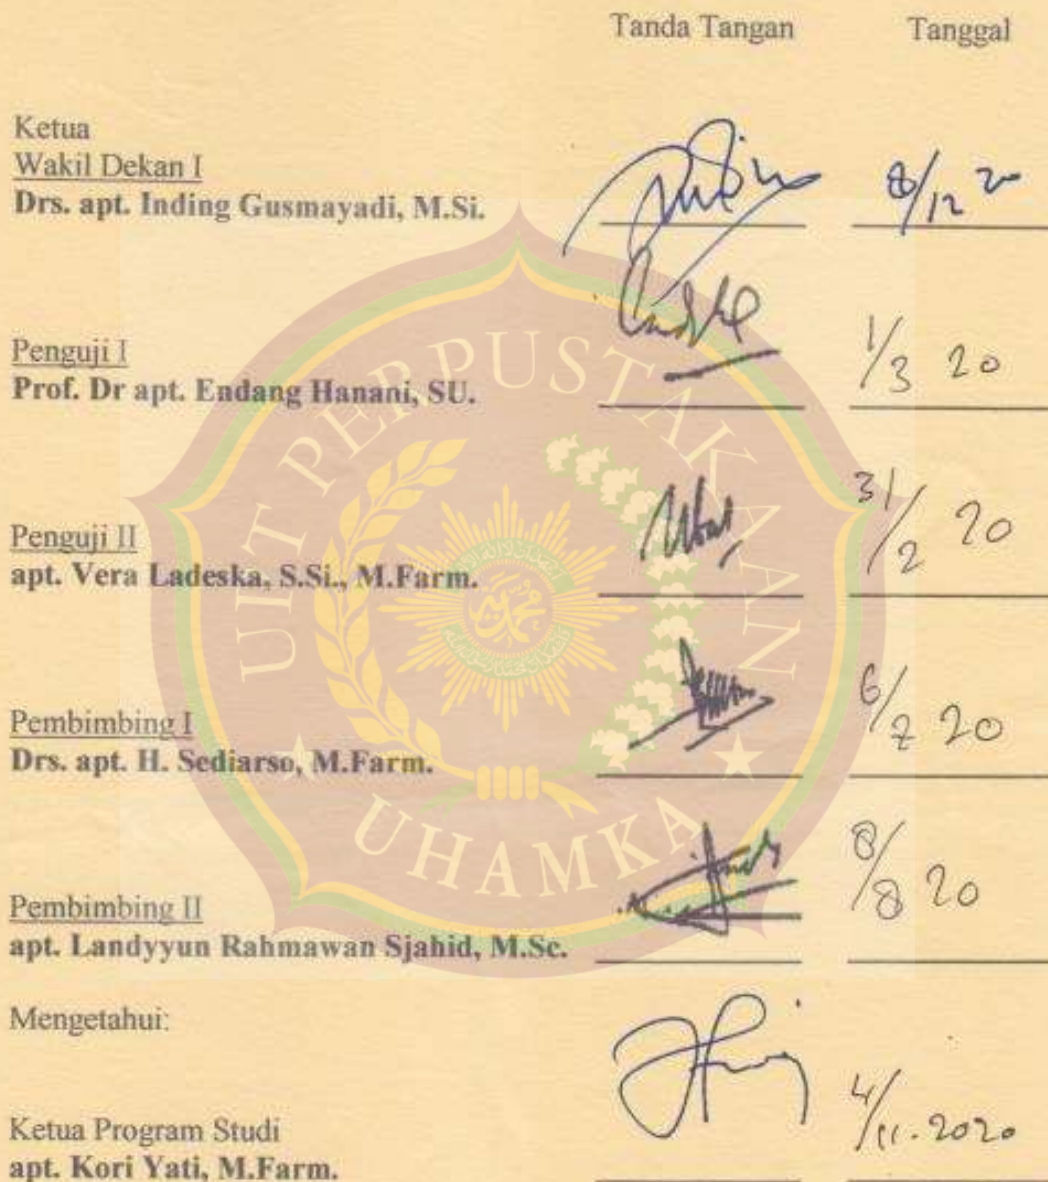 Tanda Tangan Tanggal
Ketua
Wakil Dekan I
Drs. apt. Inding Gusmayadi, M.Si. 8/12 20
Penguji I
Prof. Dr apt. Endang Hanani, SU. 1/3 20
Penguji II
apt. Vera Ladeska, S.Si., M.Farm. 31/2 20
Pembimbing I
Drs. apt. H. Sediarso, M.Farm. 6/2 20
Pembimbing II
apt. Landyyun Rahmawan Sjahid, M.Sc. 8/8 20
Mengetahui:
Ketua Program Studi
apt. Kori Yati, M.Farm. 4/11.2020
UIT PERPUSTAKAAN
UHAMKA